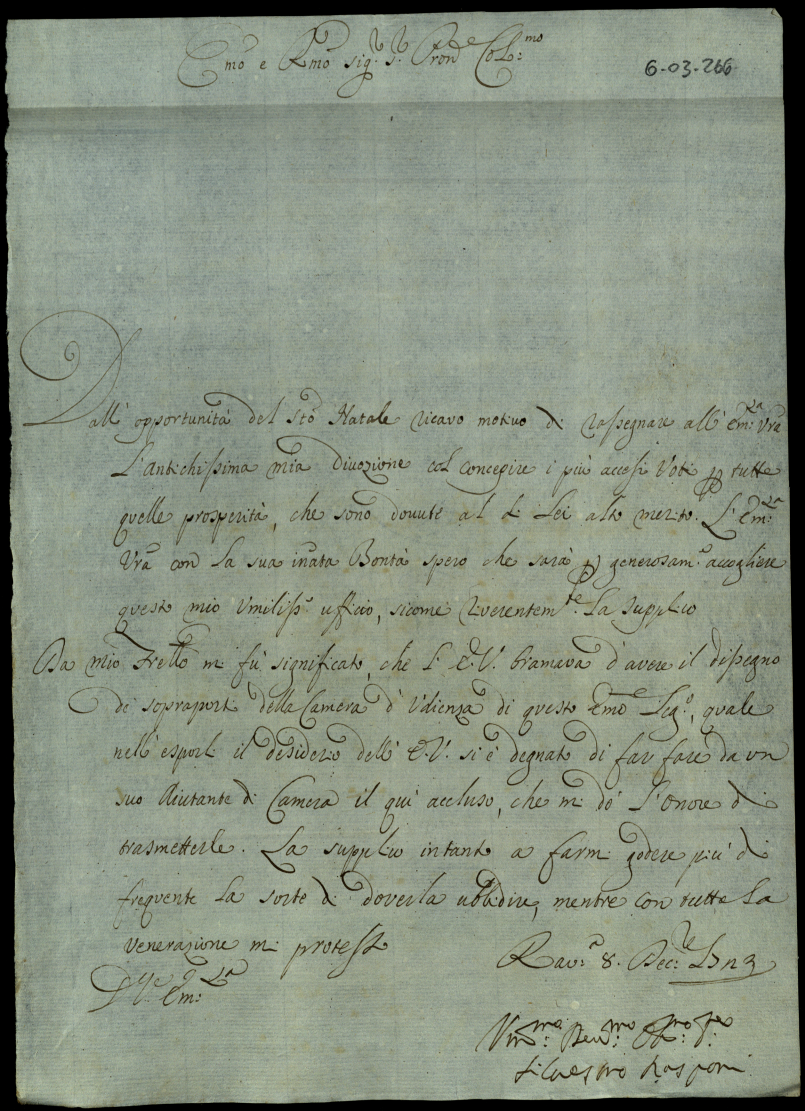 Emo e Rmo Sig.r S.r Pron Col:mo
6-03-266
Dall' opportunità del Sto Natale ricavo motivo di rassegnare all' Em:za Vra
L'antichissima mia divozione col concepire i più accesi Voti p tutte
quelle prosperità, che sono dovute al di Lei alto merito. L' Em:za
Vra con la sua inata Bontà spero che sarà p generosam.e accogliere
questo mio Umiliss.o ufficio, sicome riverentem.te La Supplico
Da mio Frello mi fù significato, che L' E.V. bramava d'avere il dissegno
di sopraporti della Camera d' Udienza di questo Emo Leg.o, quale
nell' esporli il desiderio dell' E.V. si è degnato di far fare da un
suo Aiutante di Camera il qui accluso, che mi dò l'onore di
trasmetterle. La supplico intanto a farmi godere più di
frequente la sorte di doverla ubbidire, mentre con tutta la
venerazione mi protesto
Rav:a 8. Dec:re
Em:za
Silvestro Rasponi